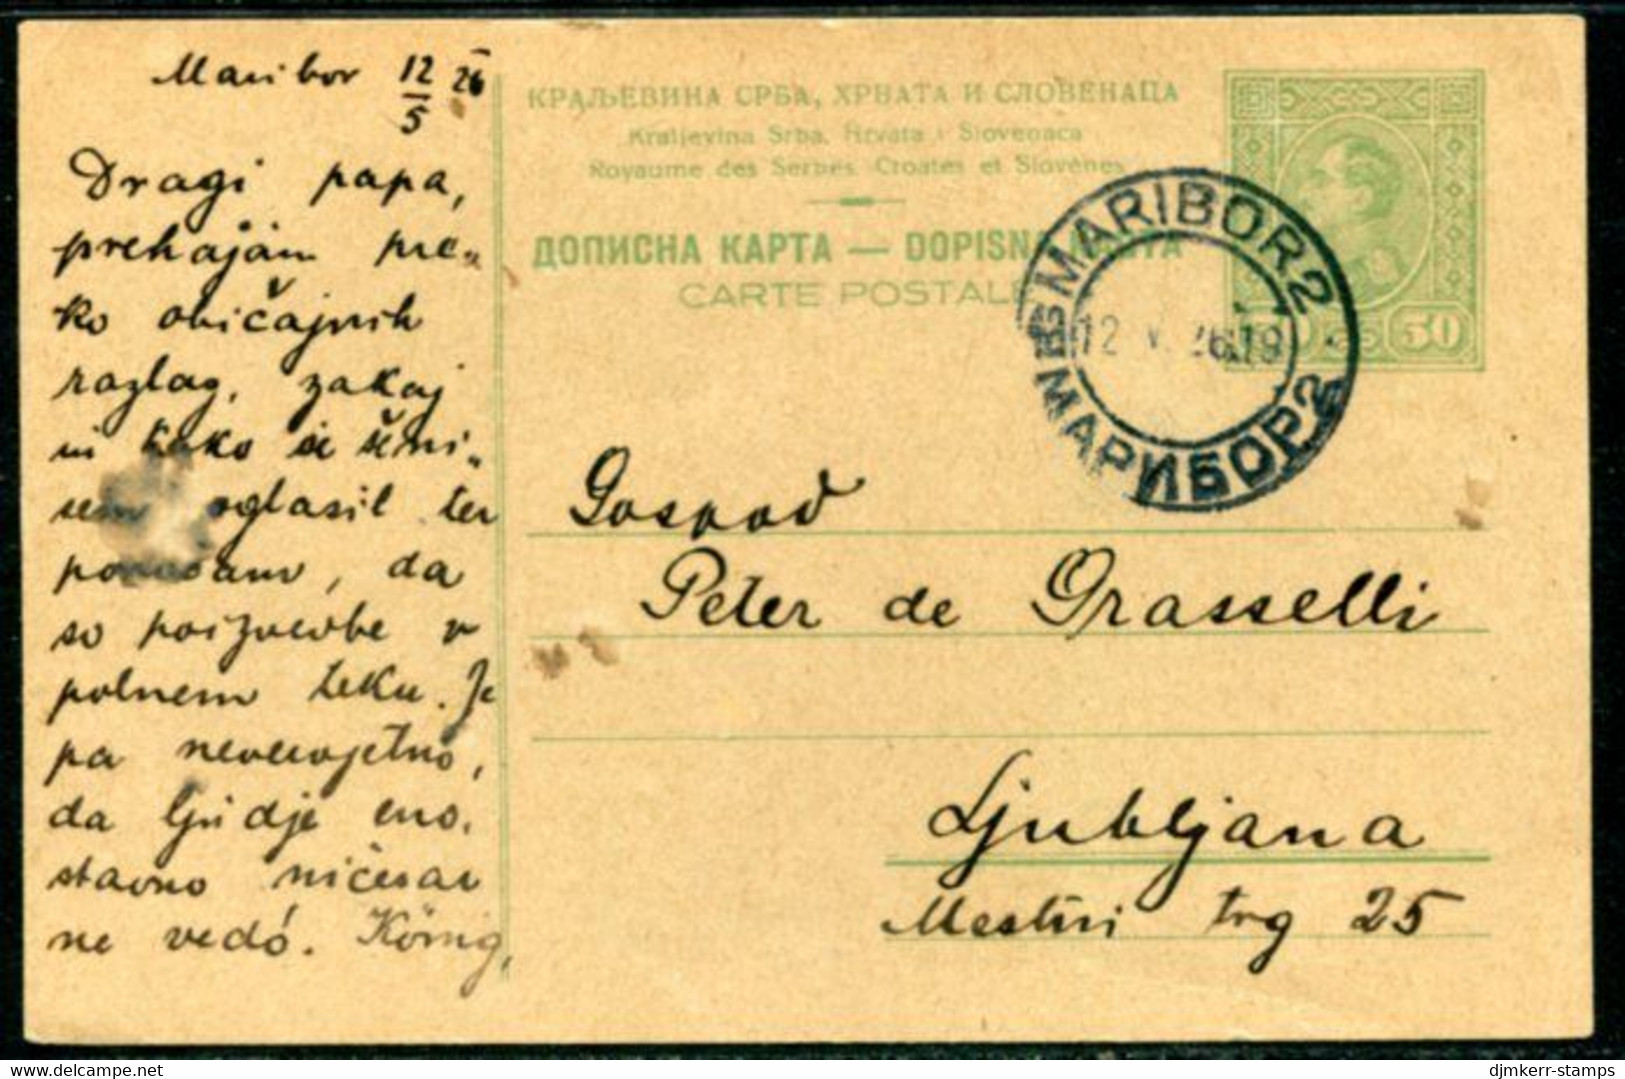 Maribor 12/5 26
Dragi papa,
prehajam pre-
ko običajnih
razlag, zakaj
in kako se še ni-
sem oglasil ter
da
so poizvedbe v
polnem teku. Je
pa neverojetno,
da ljudje eno-
stavno ničesar
ne vedó. König,
КРАЉЕВИНА СРБА, ХРВАТА И СЛОВЕНАЦА
Kraljevina Srba, Hrvata i Slovenaca
Royaume des Serbes, Croates et Slovènes
ДОПИСНА КАРТА — DOPISNA KARTA
CARTE POSTALE
50
MARIBOR 2
12 V 26.19
МАРИБОР 2
Gospod
Peter de Grasselli
Ljubljana
Mestni trg 25
djmkerr-stamps